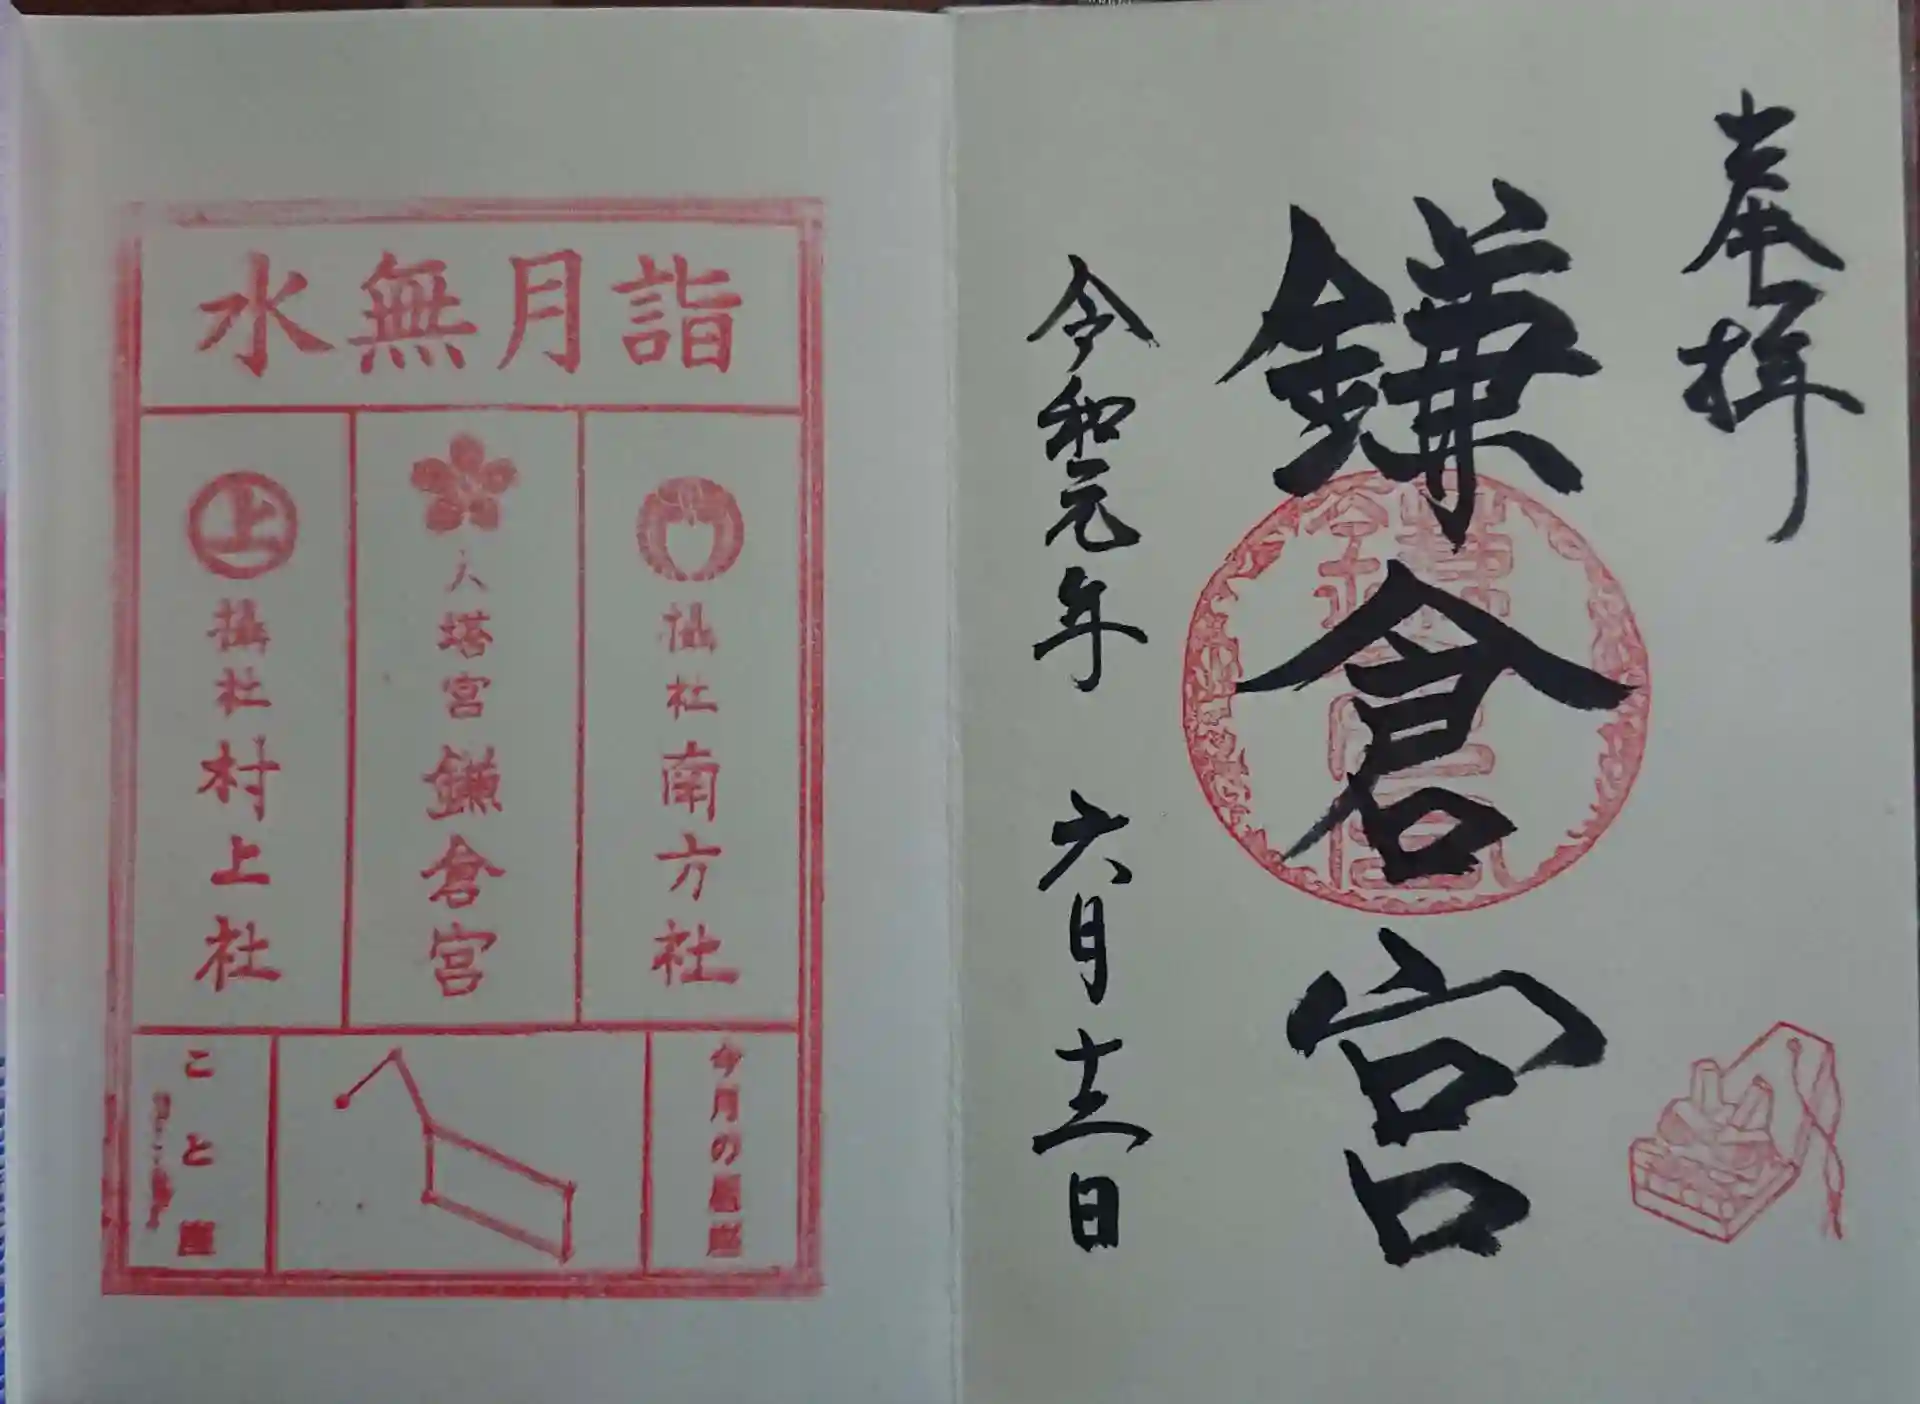 奉拝
鎌倉宮
令和元年 六月十三日
水無月詣
攝社 南方社
大塔宮 鎌倉宮
上
攝社 村上社
今月の星座
こと座